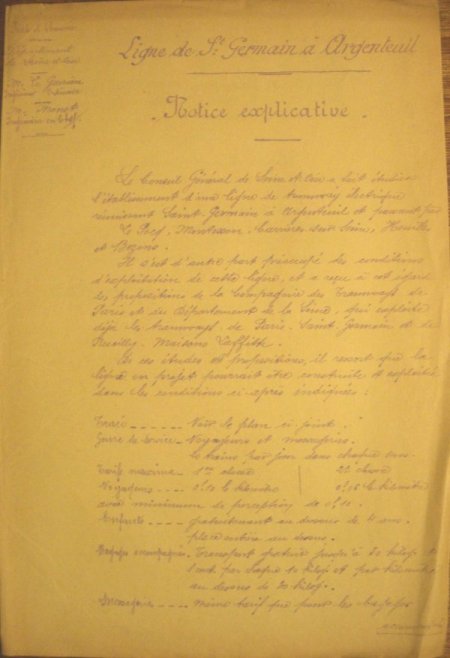 Ponts et Chaussées
Département
de Seine et Oise
Ingénieur Ordinaire
Ingénieur en Chef
Ligne de St Germain à Argenteuil
Notice explicative.
Le Conseil Général de Seine et Oise a fait étudier
l'établissement d'une ligne de tramways électriques
réunissant Saint-Germain à Argenteuil et passant par
Le Pecq, Montesson, Carrières sur Seine, Houilles
et Bezons.
Il s'est d'autre part préoccupé des conditions
d'exploitation de cette ligne, et a reçu à cet égard
les propositions de la Compagnie des Tramways de
Paris et du Département de la Seine, qui exploite
déjà les tramways de Paris-Saint-Germain et de
Neuilly-Maisons Laffitte.
De ces études et propositions, il ressort que la
ligne en projet pourrait être construite et exploitée
dans les conditions ci-après indiquées :
Tracé ------ Voir le plan ci-joint.
Genre de service - Voyageurs et messageries.
trains par jour dans chaque sens.
Tarifs maxima - 1ère classe 2e classe
Voyageurs ---- le kilomètre le kilomètre
avec minimum de perception de 0f10.
Enfants ---- gratuitement au dessous de 4 ans.
place entière au dessus.
Bagages Transport gratuit jusqu'à
au dessus de
Messageries ---- même tarif que pour les bagages